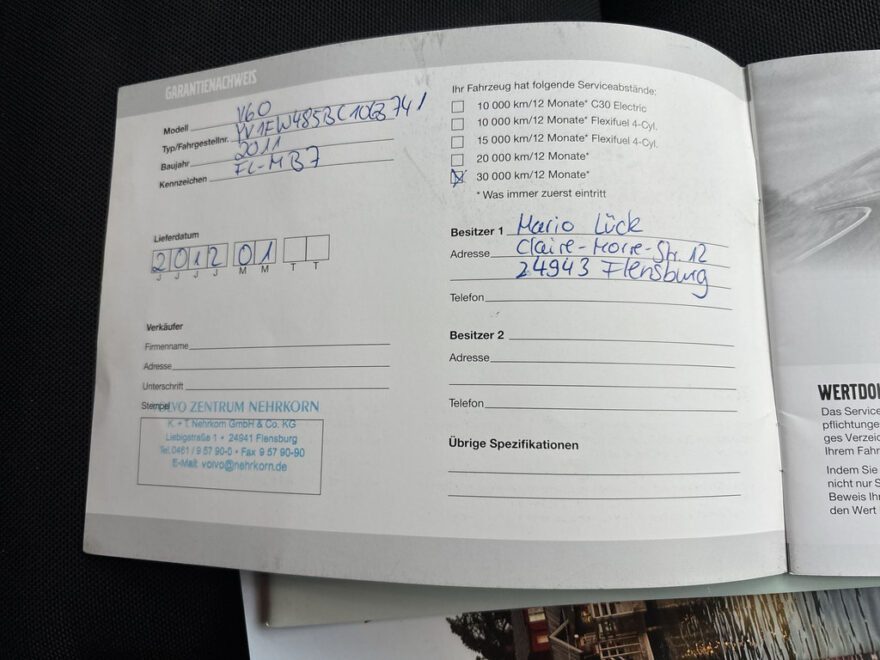 GARANTIENACHWEIS
Modell V60
Typ/Fahrgestellnr. YV1FW485BC1063741
Baujahr 2011
Kennzeichen FL-MB7
Lieferdatum
2012 01
J J J J M M T T
Verkäufer
Firmenname
Adresse
Unterschrift
Stempel
VOLVO ZENTRUM NEHRKORN
K. + T. Nehrkorn GmbH & Co. KG
Liebigstraße 1 • 24941 Flensburg
Tel. 0461 / 9 57 90-0 • Fax 9 57 90-90
E-Mail: volvo@nehrkorn.de
Ihr Fahrzeug hat folgende Serviceabstände:
10 000 km/12 Monate* C30 Electric
10 000 km/12 Monate* Flexifuel 4-Cyl.
15 000 km/12 Monate* Flexifuel 4-Cyl.
20 000 km/12 Monate*
30 000 km/12 Monate*
* Was immer zuerst eintritt
Besitzer 1 Mario Lück
Adresse Claire-Morre-Str. 12
24943 Flensburg
Telefon
Besitzer 2
Adresse
Telefon
Übrige Spezifikationen
WERTDO
Das Service
pflichtunge
ges Verzei
Ihrem Fahr
Indem Sie
nicht nur S
Beweis Ihr
den Wert